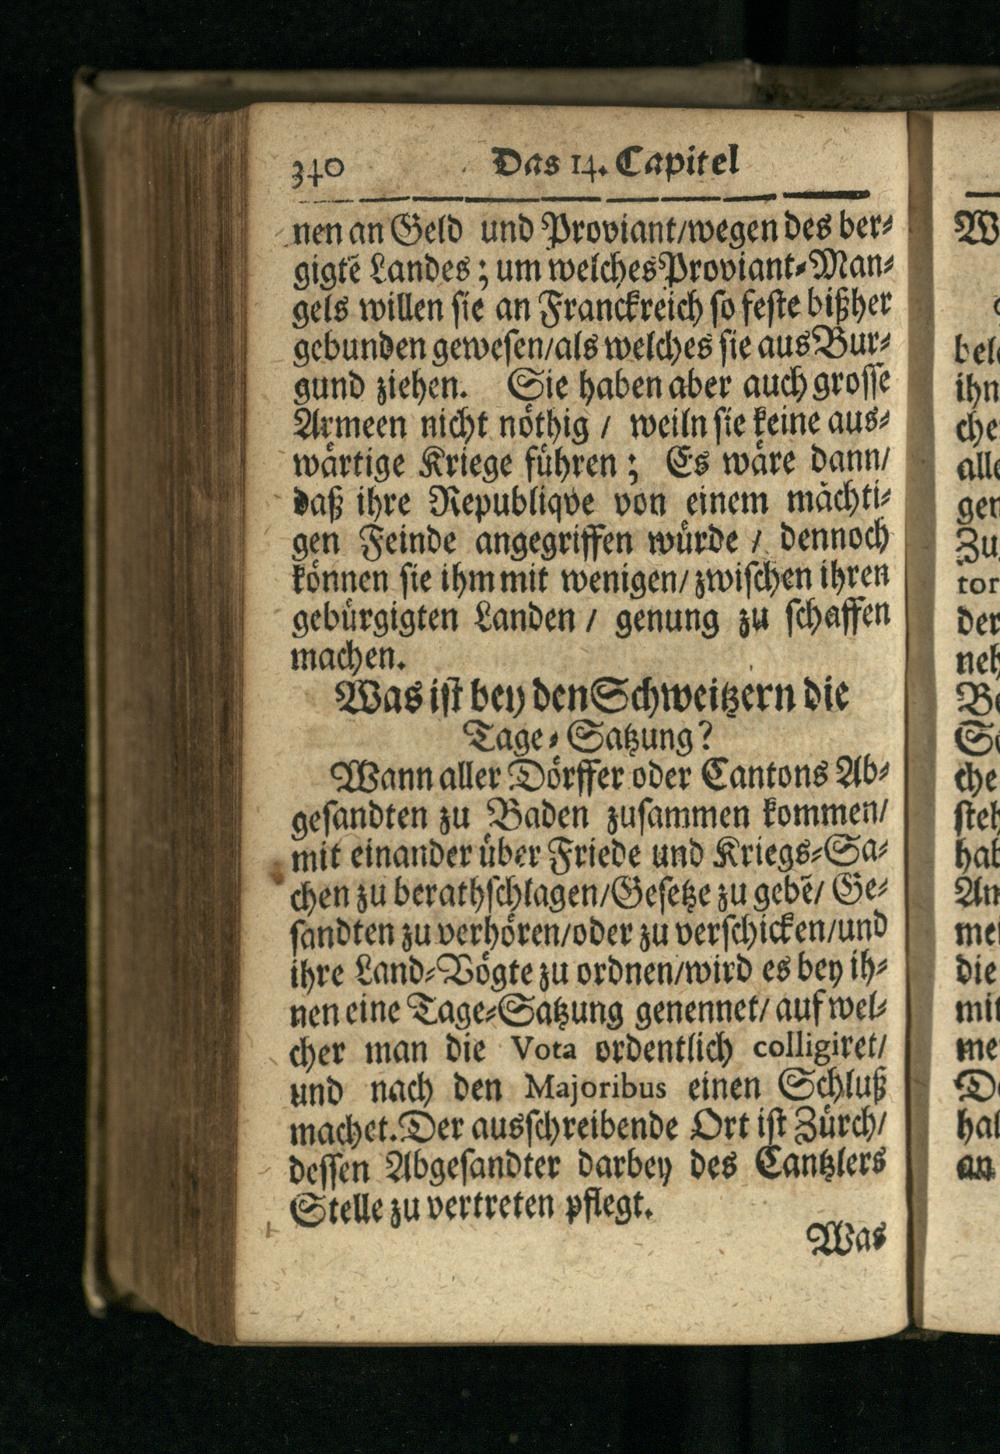 340 Das 14. Capitel
nen an Geld und Proviant/wegen des ber⸗
gigtẽ Landes; um welches Proviant⸗Man⸗
gels willen sie an Franckreich so feste bißher
gebunden gewesen/als welches sie aus Bur⸗
gund ziehen. Sie haben aber auch grosse
Armeen nicht nöthig / weiln sie keine aus⸗
wärtige Kriege führen; Es wäre dann/
daß ihre Republiqve von einem mächti⸗
gen Feinde angegriffen würde / dennoch
können sie ihm mit wenigen/ zwischen ihren
gebürgigten Landen / genung zu schaffen
machen.
Was ist bey den Schweitzern die
Tage⸗Satzung?
Wann aller Dörffer oder Cantons Ab⸗
gesandten zu Baden zusammen kommen/
mit einander über Friede und Kriegs⸗Sa⸗
chen zu berathschlagen/Gesetze zu gebẽ/ Ge⸗
sandten zu verhören/oder zu verschicken/und
ihre Land⸗Vögte zu ordnen/wird es bey ih⸗
nen eine Tage⸗Satzung genennet/ auf wel⸗
cher man die Vota ordentlich colligiret/
und nach den Majoribus einen Schluß
machet. Der ausschreibende Ort ist Zürch/
dessen Abgesandter darbey des Cantzlers
Stelle zu vertreten pflegt.
Was
W
bele
ihn
che
alle
gen
Zu
tor
der
neh
Be
che
steh
hab
An
me
die
mit
me
De
hal
an